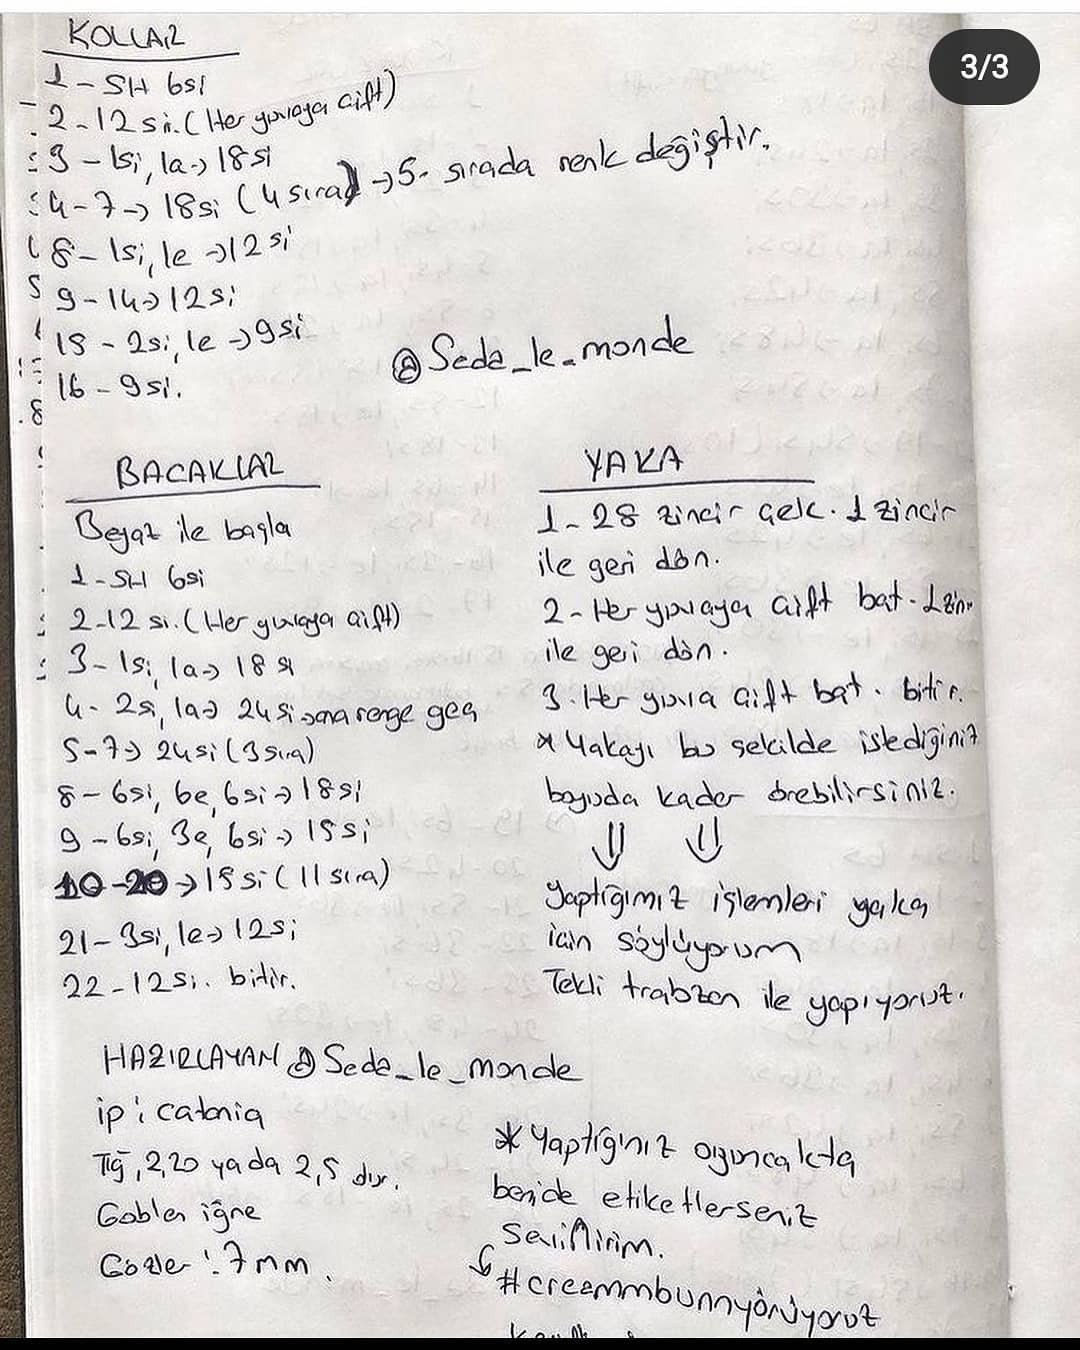 3/3
KOLLAR
1 - SH 6si
2 - 12 si. (Her yuvaya çift)
3 - 1si, 1a -> 18si
4 - 7 -> 18si (4 sıra) -> 5. sırada renk değiştir.
8 - 1si, 1e -> 12 si
9 - 14 -> 12si
15 - 2si, 1e -> 9si
16 - 9si.
@Seda_le_monde
BACAKLAR
Beyaz ile başla
1 - SH 6si
2 - 12 si. (Her yuvaya çift)
3 - 1si, 1a -> 18 si
4 - 2si, 1a -> 24si ana renge geç
5 - 7 -> 24si (3 sıra)
8 - 6si, 6e, 6si -> 18si
9 - 6si, 3e, 6si -> 15si
10 - 20 -> 15si (11 sıra)
21 - 3si, 1e -> 12si
22 - 12si. bitir.
YAKA
1 - 28 zincir çek. 1 zincir
ile geri dön.
2 - Her yuvaya çift bat. 1 zin.
ile geri dön.
3. Her yuva çift bat. bitir.
* Yakayı bu şekilde istediğiniz
boyuda kadar örebilirsiniz.
Yaptığımız işlemleri yaka
için söylüyorum
Tekli trabzan ile yapıyoruz.
HAZIRLAYAN @Seda_le_monde
ip: catonia
Tığ, 2,20 ya da 2,5 dır.
Goblen iğne
Gözler: 7mm.
* Yaptığınız oyuncakta
benide etiketlerseniz
sevinirim.
#creammbunnyörüyoruz